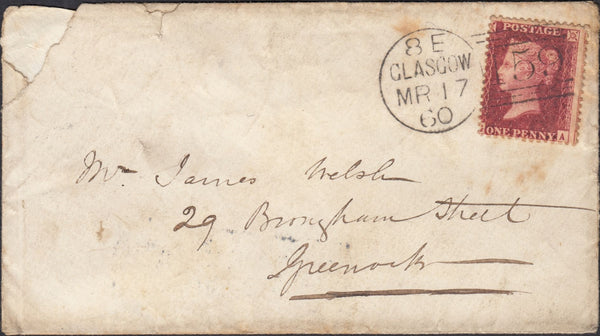 8 E
GLASGOW
MR 17
60
POSTAGE
159
ONE PENNY
A
Mr James Welsh
29 Brougham Street
Greenock